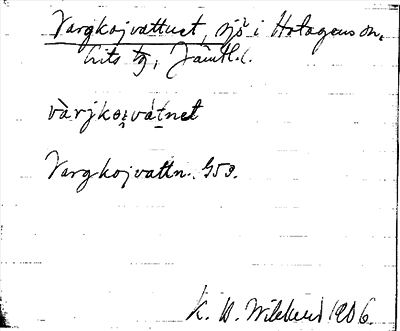 Vargkojvattnet, sjö i Hotagens sn,
lits tg, Jämtl. l.
Vargkojvattn. G53.
K. B. Wiklund 1906.